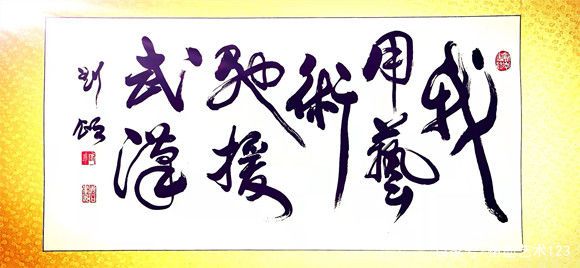 我
用藝
術
馳援
武漢
刘
术123